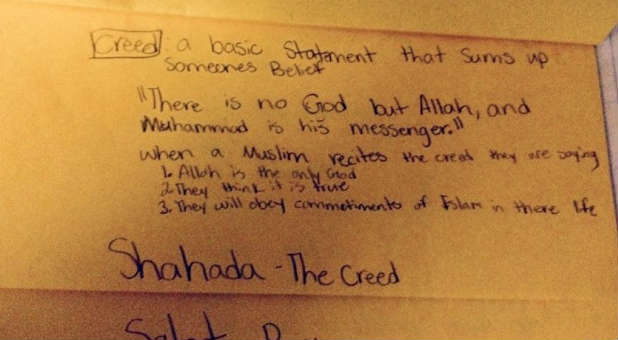 Creed: a basic Statment that sums up
someones Belief
"There is no God but Allah, and
Muhammad is his messenger."
when a Muslim recites the creed they are saying
1. Allah is the only God
2. They think it is true
3. They will obey commetiments of Islam in there life
Shahada - The Creed
Salat